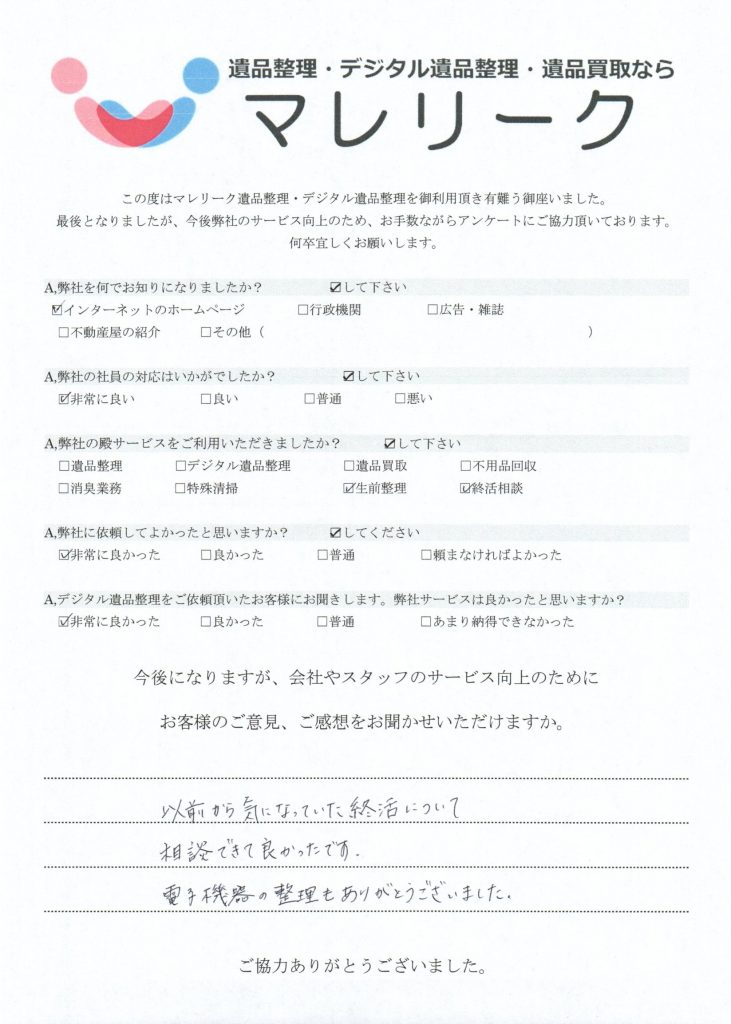 遺品整理・デジタル遺品整理・遺品買取なら
マレリーク
この度はマレリーク遺品整理・デジタル遺品整理を御利用頂き有難う御座いました。
最後となりましたが、今後弊社のサービス向上のため、お手数ながらアンケートにご協力頂いております。
何卒宜しくお願いします。
A,弊社を何でお知りになりましたか？ ☑して下さい
☑インターネットのホームページ □行政機関 □広告・雑誌
□不動産屋の紹介 □その他（ ）
A,弊社の社員の対応はいかがでしたか？ ☑して下さい
☑非常に良い □良い □普通 □悪い
A,弊社の殿サービスをご利用いただきましたか？ ☑して下さい
□遺品整理 □デジタル遺品整理 □遺品買取 □不用品回収
□消臭業務 □特殊清掃 ☑生前整理 ☑終活相談
A,弊社に依頼してよかったと思いますか？ ☑してください
☑非常に良かった □良かった □普通 □頼まなければよかった
A,デジタル遺品整理をご依頼頂いたお客様にお聞きします。弊社サービスは良かったと思いますか？
☑非常に良かった □良かった □普通 □あまり納得できなかった
今後になりますが、会社やスタッフのサービス向上のために
お客様のご意見、ご感想をお聞かせいただけますか。
以前から気になっていた終活について
相談できて良かったです.
電子機器の整理もありがとうございました.
ご協力ありがとうございました。